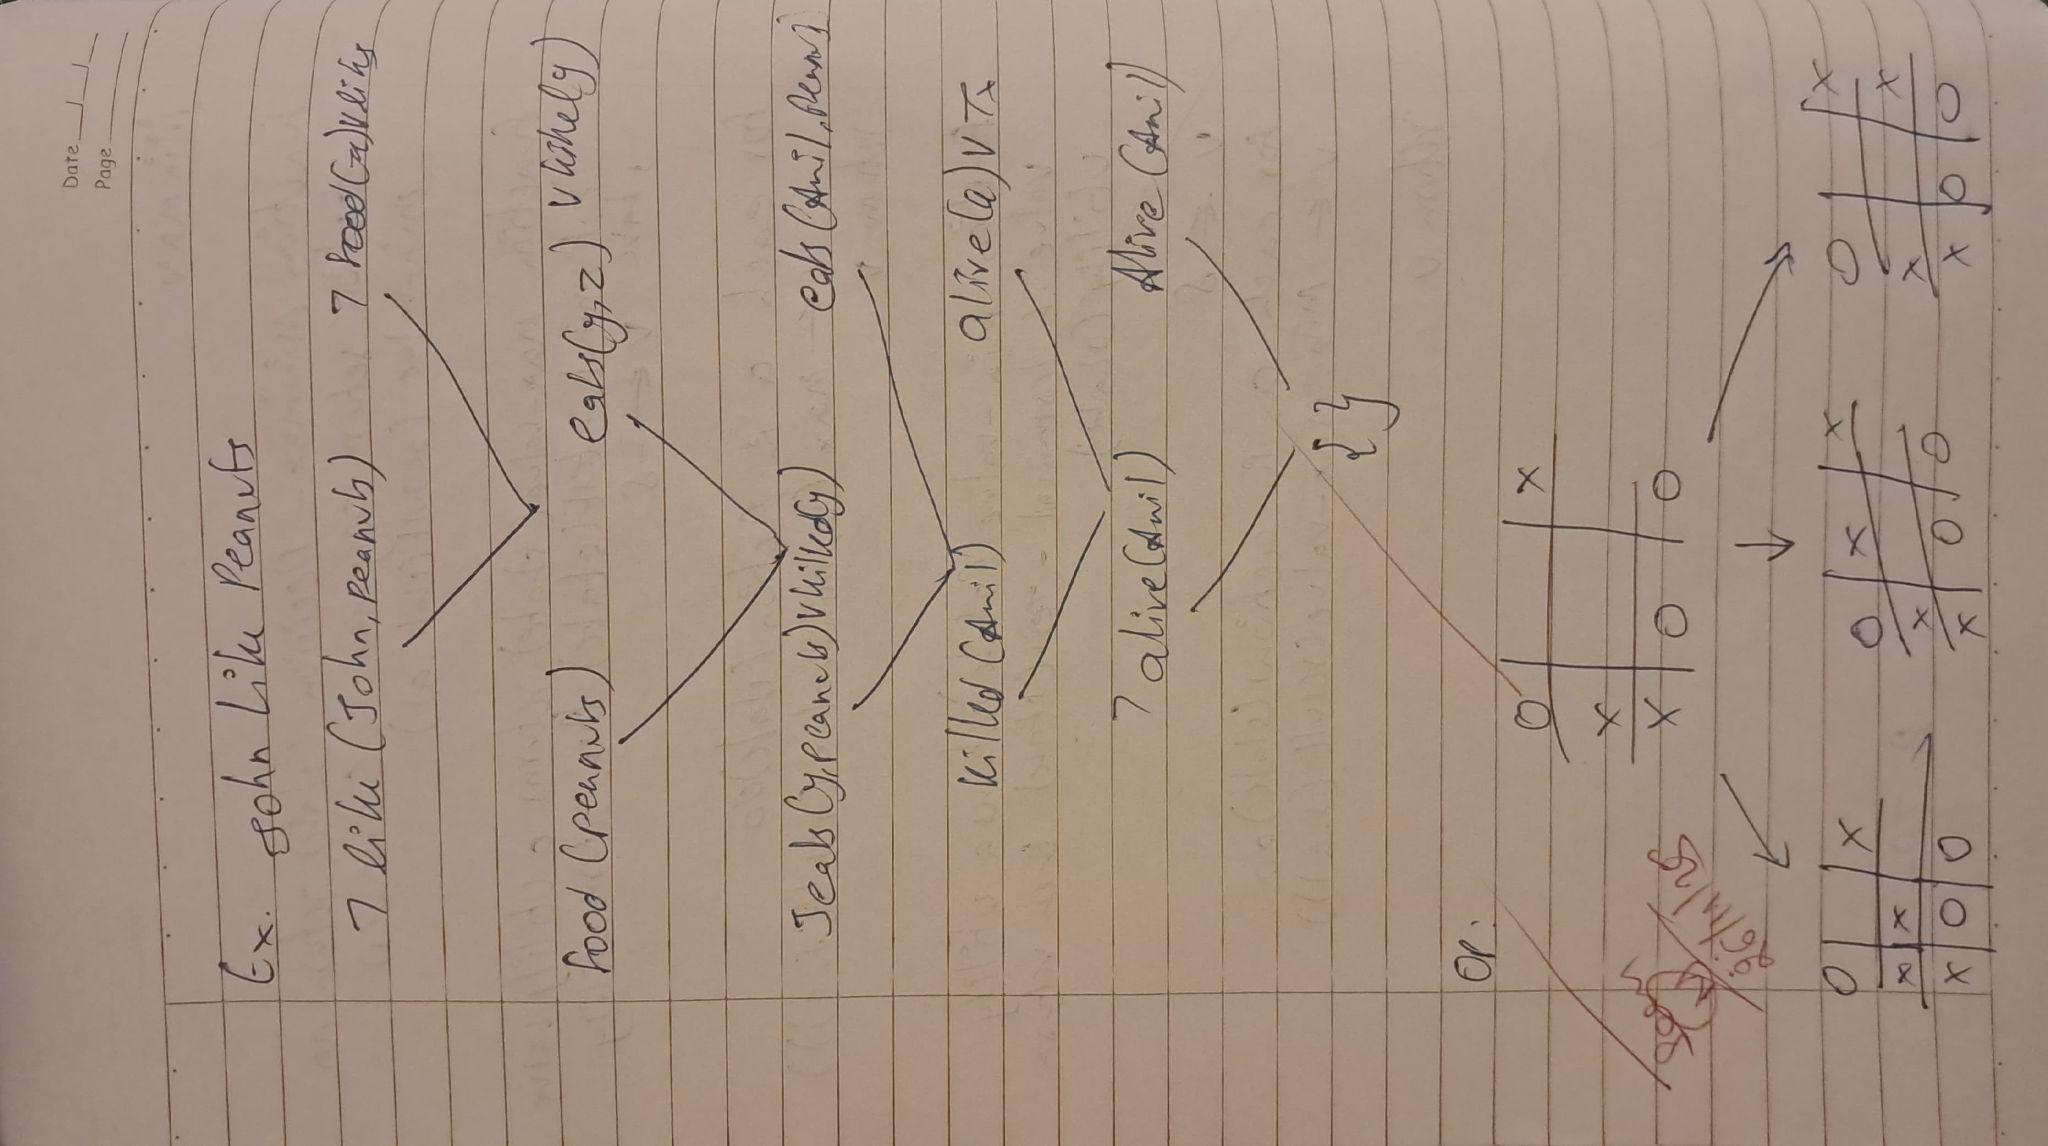 Date
Page
Ex. John Like Peanuts
7 like (John, peanuts) 7 food(x) V likes
food (peanuts) eats(y,z) V killed(y)
7eats(y, peanuts) V killed(y) eats (Anil, peanu)
killed (Anil) alive(a) V 7x
7 alive(Anil) Alive (Anil)
{ }
O/P:
O X
X
X O O
O X O X X O X
X X X X X
X O O X O O X O O